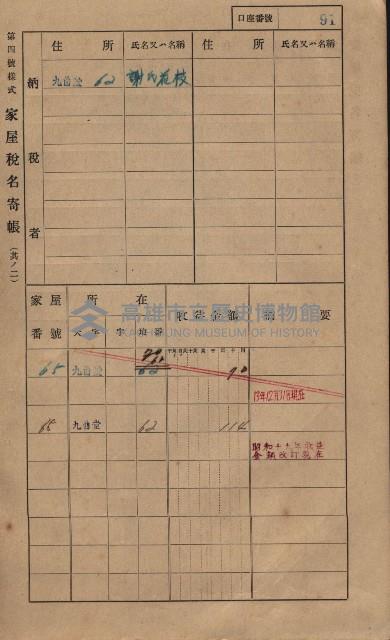 第四號樣式 家屋稅名寄帳 (其ノ二)
口座番號 91
納稅者
住所 氏名又ハ名稱 住所 氏名又ハ名稱
九曲堂 62 謝氏花枝
家屋番號 所在 收益金額 摘要
大字 字 地番
高雄市立歷史博物館
KAOHSIUNG MUSEUM OF HISTORY
65 九曲堂 62 90
13年12月31日現在
65 九曲堂 62 114
昭和十六年收益
金額改訂現在